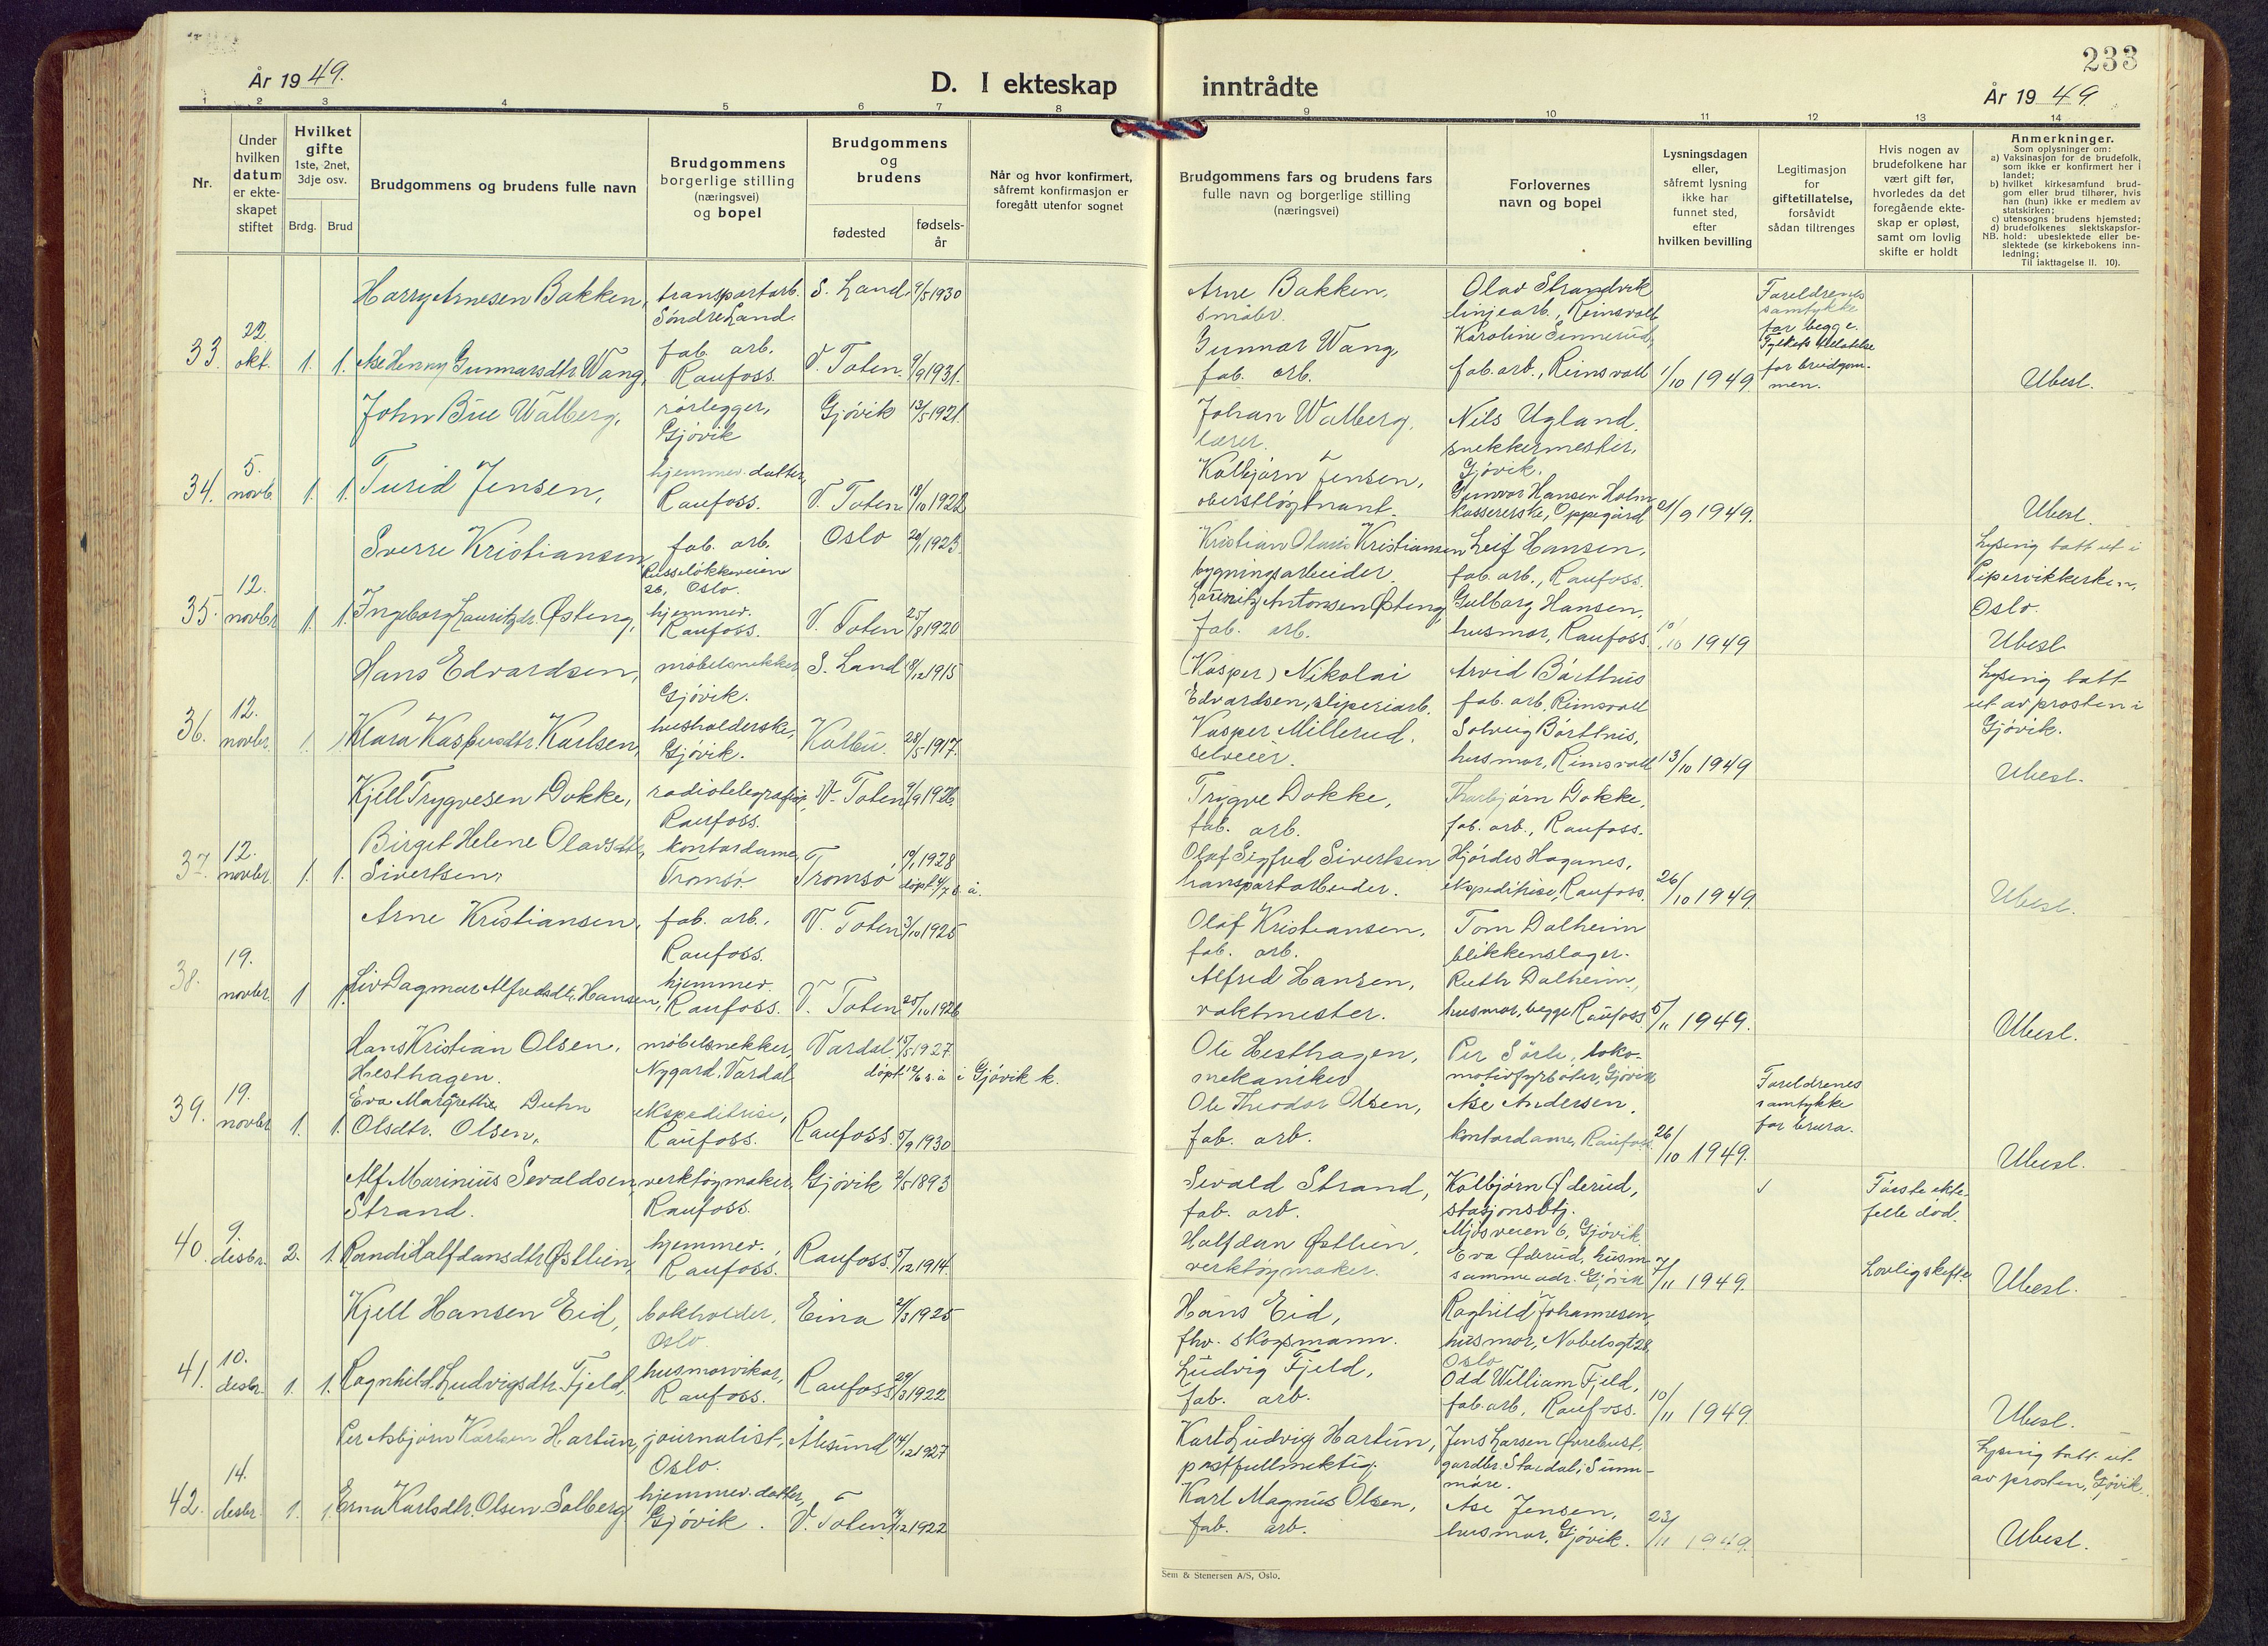 233
År 1949.
D. I ekteskap inntrådte
År 1949.
1 2 3 4 5 6 7 8 9 10 11 12 13 14
Nr.
Under hvilken datum er ekte-skapet stiftet
Hvilket gifte 1ste, 2net, 3dje osv.
Brdg. Brud
Brudgommens og brudens fulle navn
Brudgommens borgerlige stilling (næringsvei) og bopel
Brudgommens og brudens
fødested
fødsels-år
Når og hvor konfirmert, såfremt konfirmasjon er foregått utenfor sognet
Brudgommens fars og brudens fars fulle navn og borgerlige stilling (næringsvei)
Forlovernes navn og bopel
Lysningsdagen eller, såfremt lysning ikke har funnet sted, efter hvilken bevilling
Legitimasjon for giftetillatelse, forsåvidt sådan tiltrenges
Hvis nogen av brudefolkene har vært gift før, hvorledes da det foregående ekte-skap er opløst, samt om lovlig skifte er holdt
Anmerkninger.
Som oplysninger om:
a) Vaksinasjon for de brudefolk, som ikke er konfirmert her i landet;
b) hvilket kirkesamfund brud-gom eller brud tilhører, hvis han (hun) ikke er medlem av statskirken;
c) utensogns brudens hjemsted;
d) brudefolkenes slektskapsfor-hold: ubeslektede eller be-slektede (se kirkebokens inn-ledning;
NB.
Til iakttagelse II. 10).
33. 22. okt. 1. 1.
Harry Arnesen Bakken, transportarb. Søndre Land. S. Land 9/5 1930
Arne Bakken, småbr.
Olav Strandvik linjearb., Reinsvoll
Foreldrenes samtykke for begge. Fylkets tillatelse for brudgom-men.
Åse Henny Gunnarsdtr. Wang, fab. arb. Raufoss. V. Toten. 9/9 1931.
Gunnar Wang, fab. arb.
Karoline Sinnerud, fab. arb., Reinsvoll 1/10 1949. Ubesl.
34. 5. novb. 1. 1.
John Bue Walberg, rørlegger, Gjøvik Gjøvik 13/5 1921.
Johan Walberg, lærer.
Nils Ugland. snekkermester, Gjøvik.
Turid Jensen, hjemmev. datter, Raufoss. V. Toten 18/10 1922
Kolbjørn Jensen, oberstløytnant.
Gunvor Hansen Holm kassererske, Oppegård 21/9 1949. Ubesl.
35. 12. novbr. 1. 1.
Sverre Kristiansen, fab. arb. Russeløkkveien 26, Oslo. Oslo 20/1 1923.
Kristian Olaus Kristiansen bygningsarbeider.
Leif Hansen, fab. arb., Raufoss.
Lysing tatt ut i Pipervikkirken, Oslo.
Ingeborg Lauritzdr. Østeng, hjemmev. Raufoss. V. Toten 25/8 1920
Lauritz Antonsen Østeng, fab. arb.
Gulborg Hansen, husmor, Raufoss. 10/10 1949 Ubesl.
36. 12. novbr. 1. 1
Hans Edvardsen, møbelsnekker Gjøvik. S. Land 8/12 1915
(Kasper) Nikolai Edvardsen, sliperiarb.
Arvid Bårthus fab. arb. Reinsvoll
Lysing tatt ut av prosten i Gjøvik.
Klara Kaspersdtr. Karlsen, husholderske, Gjøvik. Kolbu. 28/5 1917.
Kasper Millerud. selveier.
Solveig Bårthus, husmor, Reinsvoll 13/10 1949 Ubesl.
37. 12. novbr. 1. 1.
Kjell Trygvesen Dokke, radiotelegrafist, Raufoss. V. Toten 9/9 1926
Trygve Dokke, fab. arb.
Thorbjørn Dokke, fab. arb., Raufoss.
Birget Helene Olavsdtr. Sivertsen, kontordame, Tromsø Tromsø 19/1 1928 døpt 4/7 s. å.
Olaf Sigfred Sivertsen transportarbeider.
Hjørdis Haganes, ekspeditrise, Raufoss. 26/10 1949. Ubesl.
38. 19. novbr. 1 1.
Arne Kristiansen, fab. arb., Raufoss. V. Toten 3/10 1925
Olaf Kristiansen, fab. arb.
Tom Dalheim blikkenslager.
Liv Dagmar Alfredsdtr. Hansen, hjemmev. Raufoss. V. Toten 25/10 1926
Alfred Hansen, vaktmester.
Ruth Dalheim, husmor, begge Raufoss. 5/11 1949. Ubesl.
39. 19. novbr 1. 1.
Hans Kristian Olsen, Hesthagen. møbelsnekker, Nygard, Vardal Vardal. 15/5 1927. døpt 12/6 s. å i Gjøvik k.
Ole Hesthagen, mekaniker
Per Sørli, loko-motivfyrbøter, Gjøvik
Foreldrenes samtykke for brura.
Eva Margrethe Duhn Olsdtr. Olsen, ekspeditrise, Raufoss. Raufoss. 5/9 1930
Ole Theodor Olsen, fab. arb.
Åse Andersen, kontordame, Raufoss 26/10 1949. Ubesl.
40. 9. desbr. 2. 1.
Alf Marinius Sevaldsen Strand. verktøymaker, Raufoss. Gjøvik 2/5 1893
Sevald Strand, fab. arb.
Kolbjørn Øderud, stasjonsbtj. Mjøsveien 6, Gjøvik.
Første ekte-felle død.
Randi Halfdansdtr Østlien, hjemmev. Raufoss. Raufoss. 5/12 1914.
Halfdan Østlien, verktøymaker.
Eva Øderud, husm. samme adr. Gjøvik 7/11 1949. Lovlig skifte Ubesl.
41. 10. desbr. 1. 1.
Kjell Hansen Eid, bokholder, Oslo. Eina 21/3 1925
Hans Eid, fhv. skogsmann.
Raghild Johannesen, husmor, Nobelsgt 28, Oslo
Ragnhild Ludvigsdtr. Fjeld, husmorvikar, Raufoss. Raufoss 29/3 1922
Ludvig Fjeld, fab. arb.
Odd William Fjeld, fab. arb, Raufoss. 10/11 1949. Ubesl.
42. 14. desbr. 1. 1.
Per Asbjørn Karlsen Hartun, journalist, Oslo. Ålesund 14/12 1927
Karl Ludvig Hartun, postfullmektig.
Jens Larsen Øvrebust, gardbr. Stordal, Sunn-møre.
Lysing tatt ut av prosten, Gjøvik.
Erna Karlsdtr. Olsen Solberg hjemmev. datter, Gjøvik. V. Toten 14/12 1922
Karl Magnus Olsen, fab. arb.
Åse Jensen, husmor, Gjøvik. 23/11 1949. Ubesl.
Sem & Stenersen A/S, Oslo.